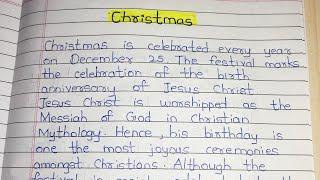 Christmas
Christmas is celebrated every year
on December 25. The festival marks
the celebration of the birth
anniversary of Jesus Christ.
Jesus Christ is worshipped as the
Messiah of God in Christian
Mythology. Hence, his birthday is
one the most joyous ceremonies
amongst Christians. Although the